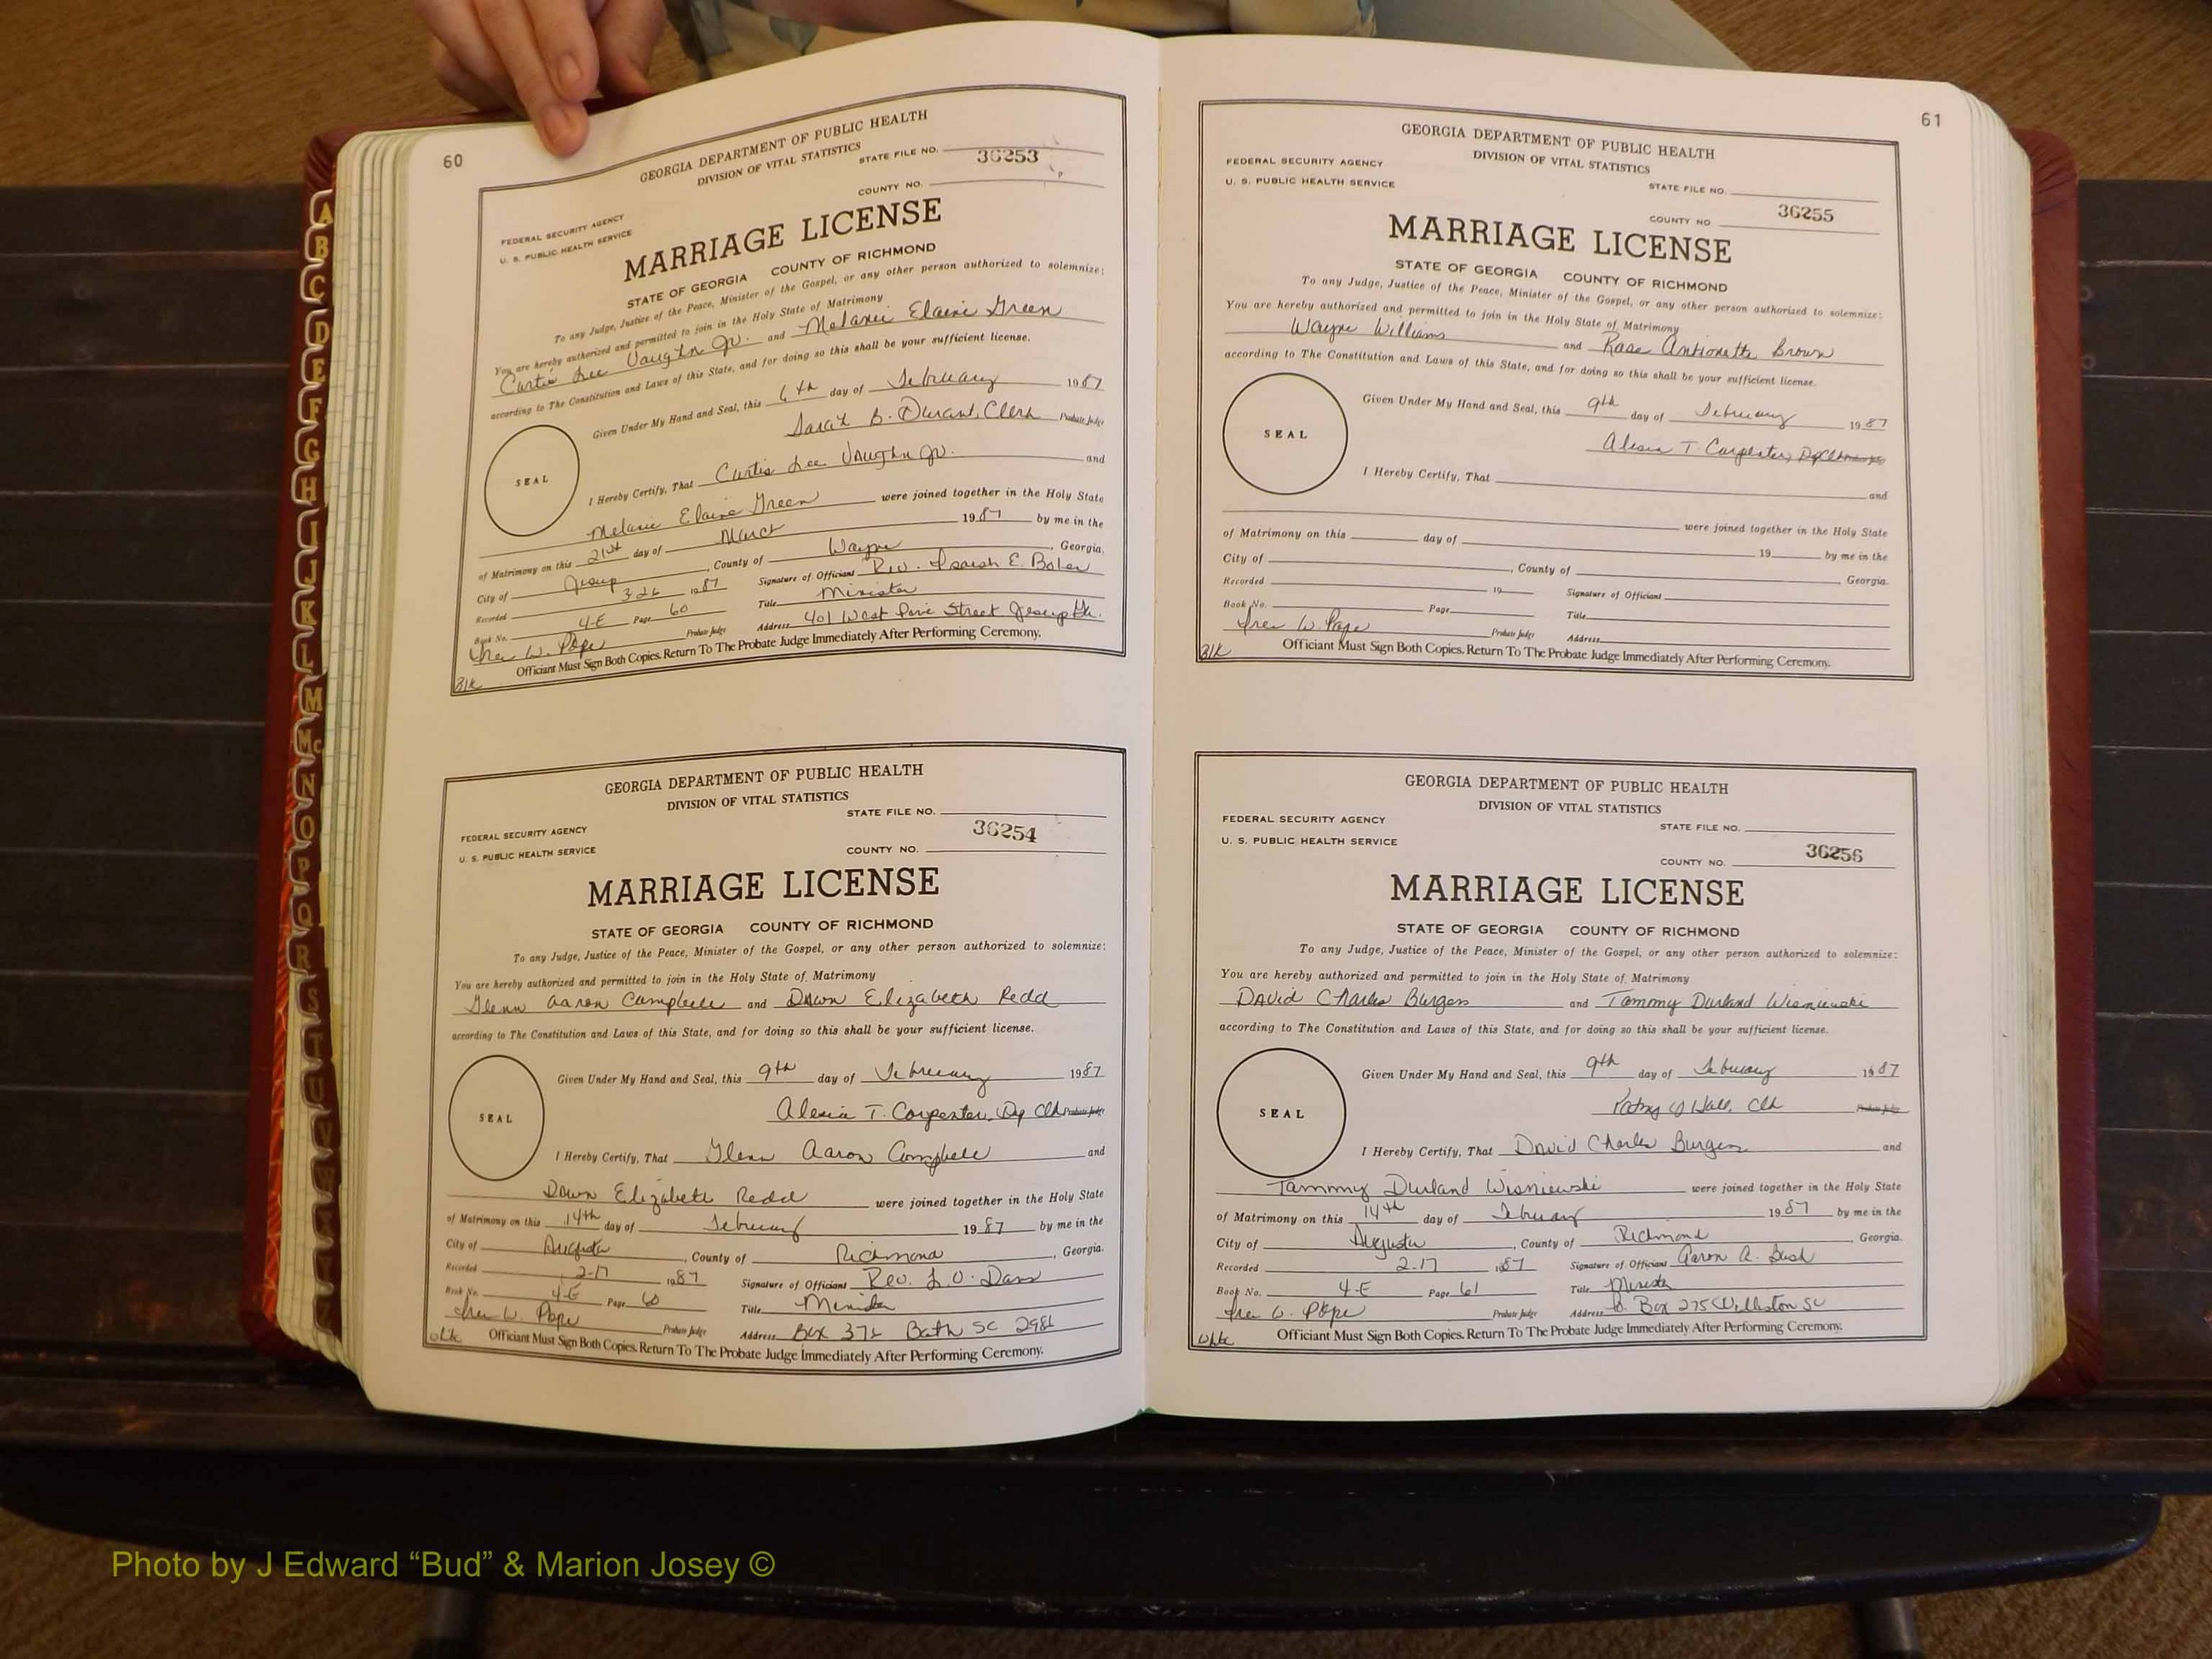 60
GEORGIA DEPARTMENT OF PUBLIC HEALTH
DIVISION OF VITAL STATISTICS
STATE FILE NO. 36253
COUNTY NO.
FEDERAL SECURITY AGENCY
U. S. PUBLIC HEALTH SERVICE
MARRIAGE LICENSE
STATE OF GEORGIA COUNTY OF RICHMOND
To any Judge, Justice of the Peace, Minister of the Gospel, or any other person authorized to solemnize:
You are hereby authorized and permitted to join in the Holy State of Matrimony
Curtis Lee Vaughn Jr. and Melanie Elaine Green
according to The Constitution and Laws of this State, and for doing so this shall be your sufficient license.
Given Under My Hand and Seal, this 6th day of February 1987
Sarah B. Durant, Clerk Probate Judge
SEAL
I Hereby Certify, That Curtis Lee Vaughn Jr. and
Melanie Elaine Green were joined together in the Holy State
of Matrimony on this 21st day of March 1987 by me in the
City of Jesup, County of Wayne, Georgia.
Recorded 3-26 1987 Signature of Officiant Rev. Isaiah E.
Book No. 4-E Page 60 Title Minister
Probate Judge Address 401 West Street Jesup Ga.
Officiant Must Sign Both Copies. Return To The Probate Judge Immediately After Performing Ceremony.
Blk
GEORGIA DEPARTMENT OF PUBLIC HEALTH
DIVISION OF VITAL STATISTICS
STATE FILE NO.
FEDERAL SECURITY AGENCY
36254
U. S. PUBLIC HEALTH SERVICE
COUNTY NO.
MARRIAGE LICENSE
STATE OF GEORGIA COUNTY OF RICHMOND
To any Judge, Justice of the Peace, Minister of the Gospel, or any other person authorized to solemnize:
You are hereby authorized and permitted to join in the Holy State of Matrimony
Glenn Aaron Campbell and Dawn Elizabeth Redd
according to The Constitution and Laws of this State, and for doing so this shall be your sufficient license.
Given Under My Hand and Seal, this 9th day of February 1987
Alexia T. Carpenter, Dp Clk Probate Judge
SEAL
I Hereby Certify, That Glenn Aaron Campbell and
Dawn Elizabeth Redd were joined together in the Holy State
of Matrimony on this 14th day of February 1987 by me in the
City of Augusta, County of Richmond, Georgia.
Recorded 2-17 1987 Signature of Officiant Rev. L. O.
Book No. 4-E Page 60 Title Minister
W. Pope Probate Judge Address Box 372 Bath SC
Officiant Must Sign Both Copies. Return To The Probate Judge Immediately After Performing Ceremony.
61
GEORGIA DEPARTMENT OF PUBLIC HEALTH
DIVISION OF VITAL STATISTICS
FEDERAL SECURITY AGENCY
U. S. PUBLIC HEALTH SERVICE
STATE FILE NO.
36255
COUNTY NO
MARRIAGE LICENSE
STATE OF GEORGIA COUNTY OF RICHMOND
To any Judge, Justice of the Peace, Minister of the Gospel, or any other person authorized to solemnize:
You are hereby authorized and permitted to join in the Holy State of Matrimony
Wayne Williams and Rose Antionette Brown
according to The Constitution and Laws of this State, and for doing so this shall be your sufficient license.
Given Under My Hand and Seal, this 9th day of February 1987
Alexia T. Carpenter, Dp Clk Probate Judge
SEAL
I Hereby Certify, That and
were joined together in the Holy State
of Matrimony on this day of 19 by me in the
City of , County of , Georgia.
Recorded 19 Signature of Officiant
Book No. Page Title
W. Pope Probate Judge Address
Officiant Must Sign Both Copies. Return To The Probate Judge Immediately After Performing Ceremony.
Blk
GEORGIA DEPARTMENT OF PUBLIC HEALTH
DIVISION OF VITAL STATISTICS
FEDERAL SECURITY AGENCY
STATE FILE NO.
U. S. PUBLIC HEALTH SERVICE
36256
COUNTY NO.
MARRIAGE LICENSE
STATE OF GEORGIA COUNTY OF RICHMOND
To any Judge, Justice of the Peace, Minister of the Gospel, or any other person authorized to solemnize:
You are hereby authorized and permitted to join in the Holy State of Matrimony
David Charles Burgess and Tammy Durland Wisniewski
according to The Constitution and Laws of this State, and for doing so this shall be your sufficient license.
Given Under My Hand and Seal, this 9th day of February 1987
Hall, Clk Probate Judge
SEAL
I Hereby Certify, That David Charles Burgess and
Tammy Durland Wisniewski were joined together in the Holy State
of Matrimony on this 14th day of February 1987 by me in the
City of Augusta, County of Richmond, Georgia.
Recorded 2-17 1987 Signature of Officiant Aaron A. Bush
Book No. 4-E Page 61 Title Minister
W. Pope Probate Judge Address Box 275 Williston SC
Officiant Must Sign Both Copies. Return To The Probate Judge Immediately After Performing Ceremony.
A
B
C
D
E
F
G
H
I
J
K
L
M
Mc
N
O
P
Q
R
S
T
U
V
Photo by J Edward “Bud” & Marion Josey ©